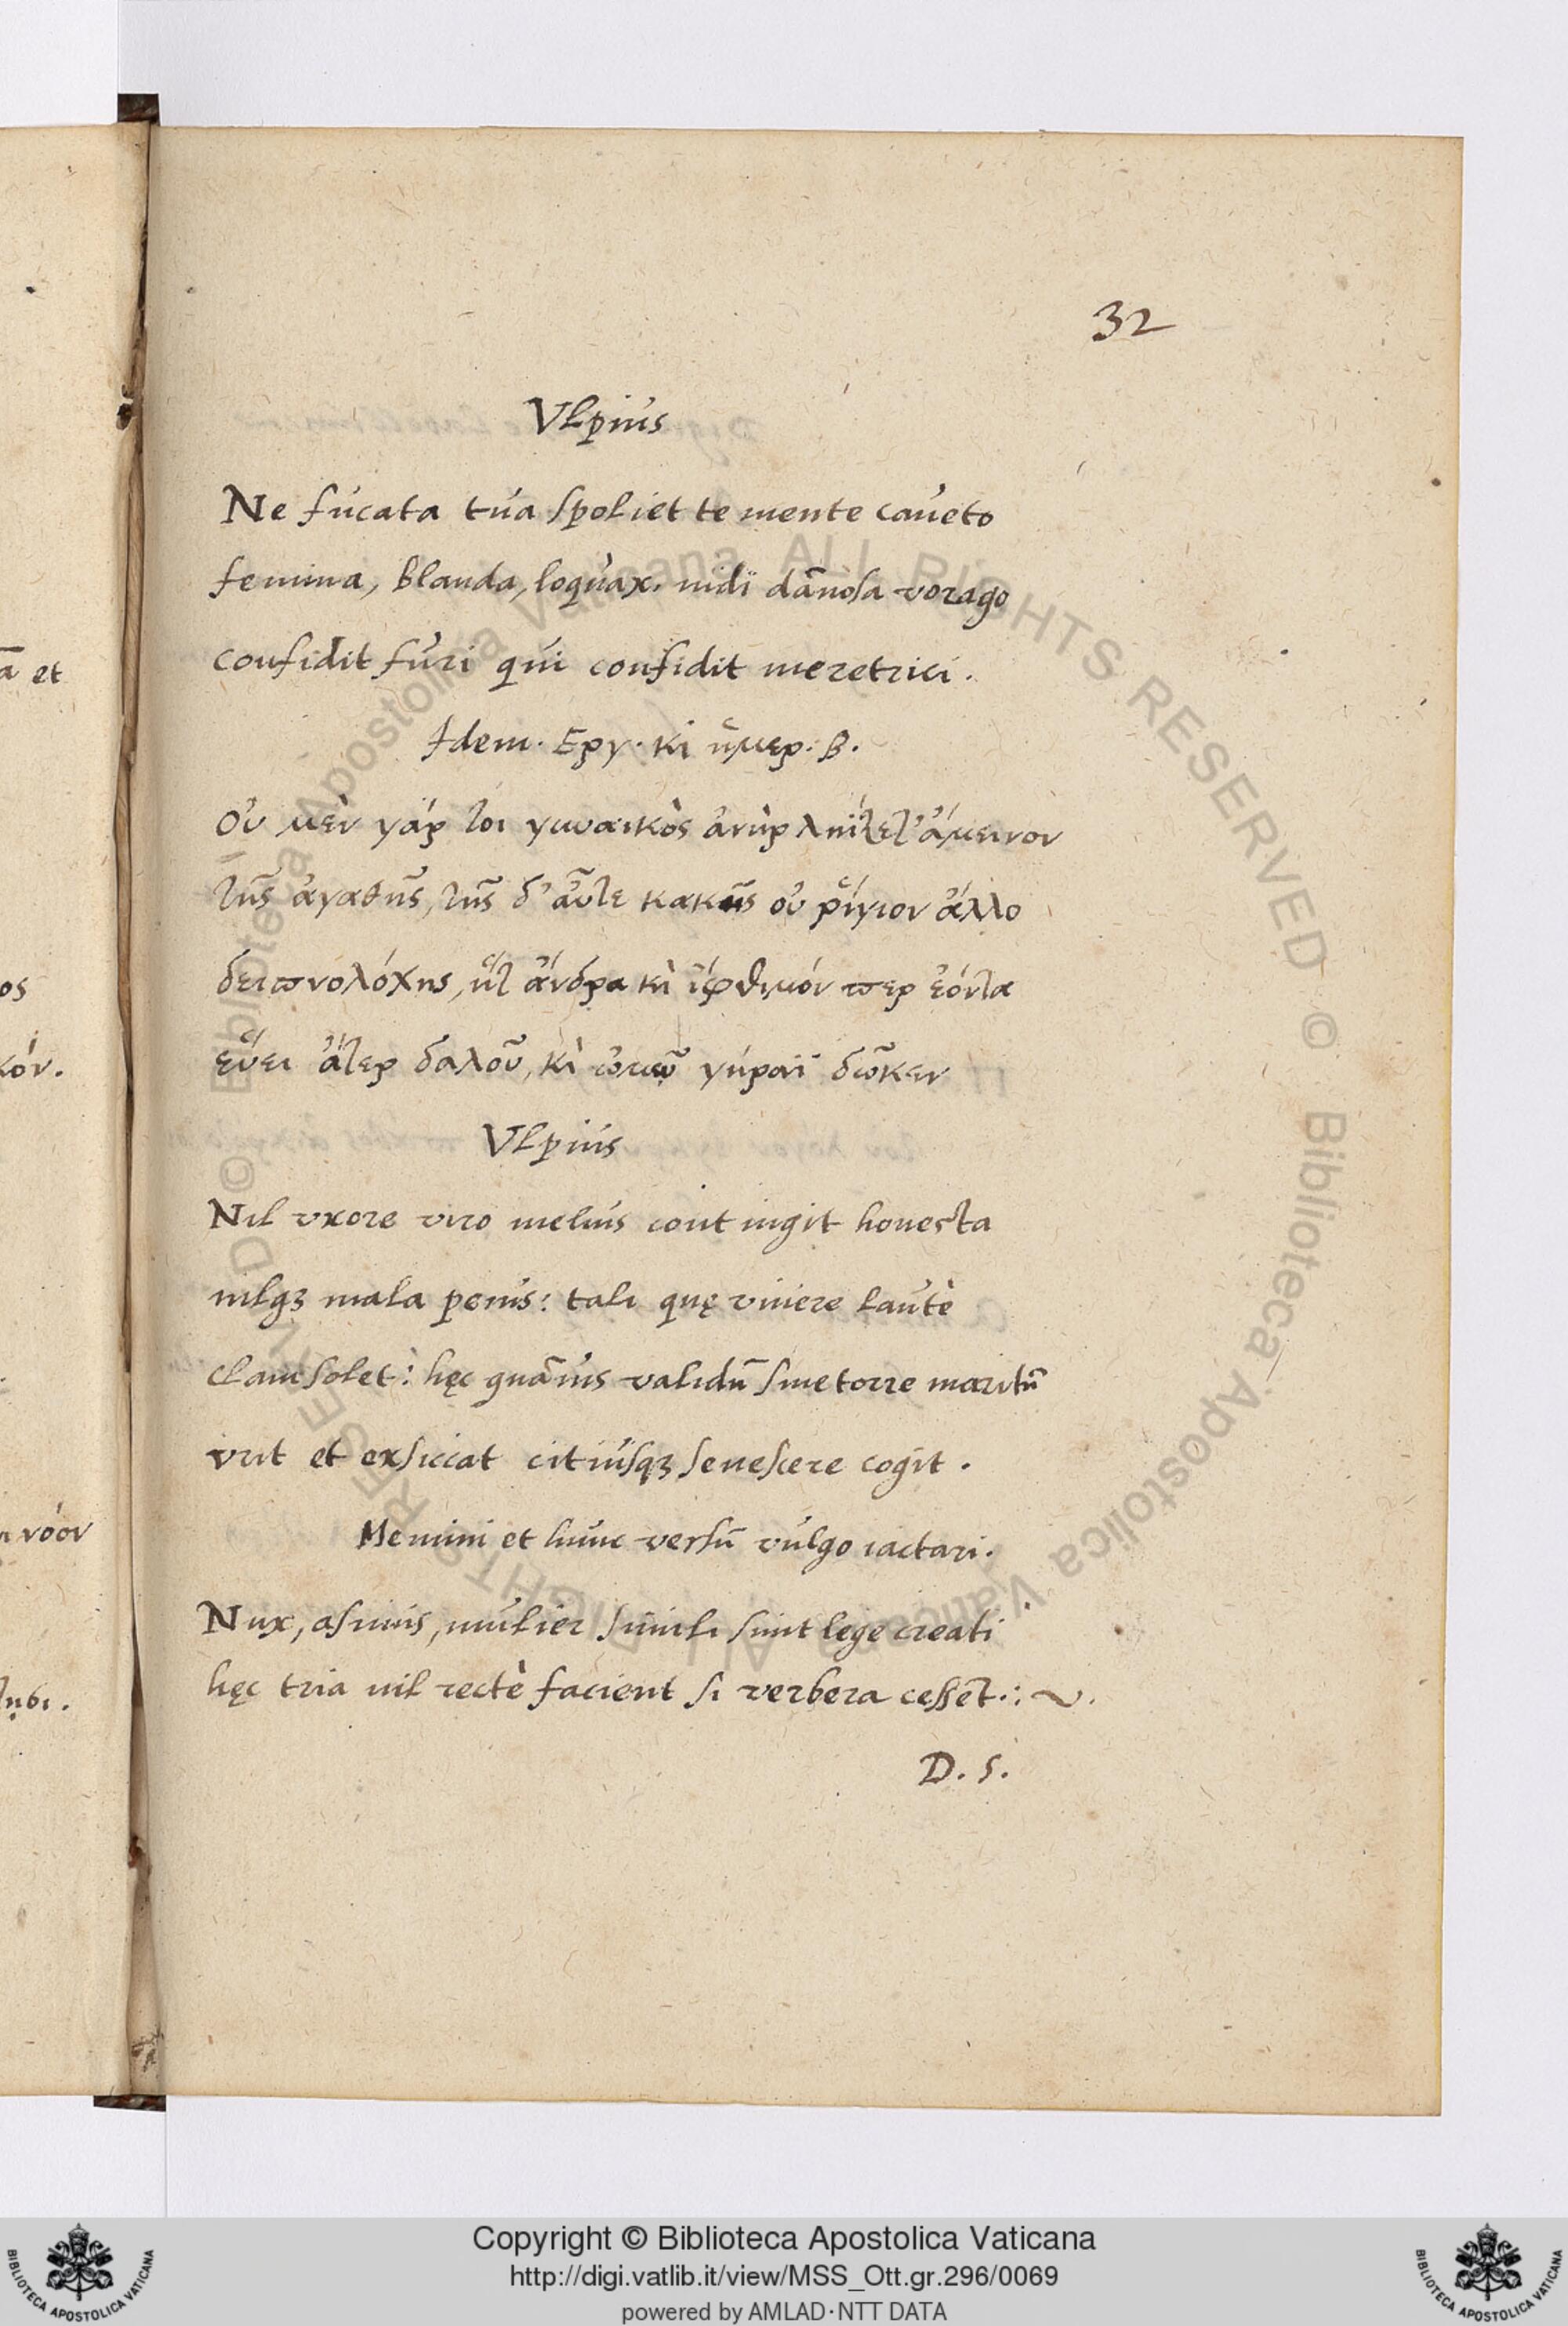 32
Vlpius
Ne fucata tua spoliet te mente caveto
femina, blanda, loquax. nidi dãnosa vorago
confidit furi qui confidit meretrici.
Idem. Εργ. κὶ ἡμερ. β.
οὐ μὲν γάρ τοι γυναικὸς ἀνὴρ ληίζετ' ἄμεινον
τῆς ἀγαθῆς, τῆς δ' αὖτε κακῆς οὐ ῥίγιον ἄλλο
δειπνολόχης, ἥτ ἄνδρα κὶ ἴφθιμόν περ ἐόντα
εὕει ἄτερ δαλοῦ, κὶ ὠμῷ γήραϊ δῶκεν
Vlpius
Nil vxore viro melius contingit honesta
nilqꝫ mala peius: tali quę viuere lautè
clam solet: hęc quãuis validũ sine torre maritũ
vrit et exsiccat citiusqꝫ senescere cogit.
Memini et hunc versũ vulgo iactari.
Nux, asinus, mulier simili sunt lege creati
hęc tria nil rectè facient si verbera cessẽt.:~.
D. S.
ã et
ος
κόν.
νόον
Copyright © Biblioteca Apostolica Vaticana
http://digi.vatlib.it/view/MSS_Ott.gr.296/0069
powered by AMLAD·NTT DATA
BIBLIOTECA APOSTOLICA VATICANA
BIBLIOTECA APOSTOLICA VATICANA